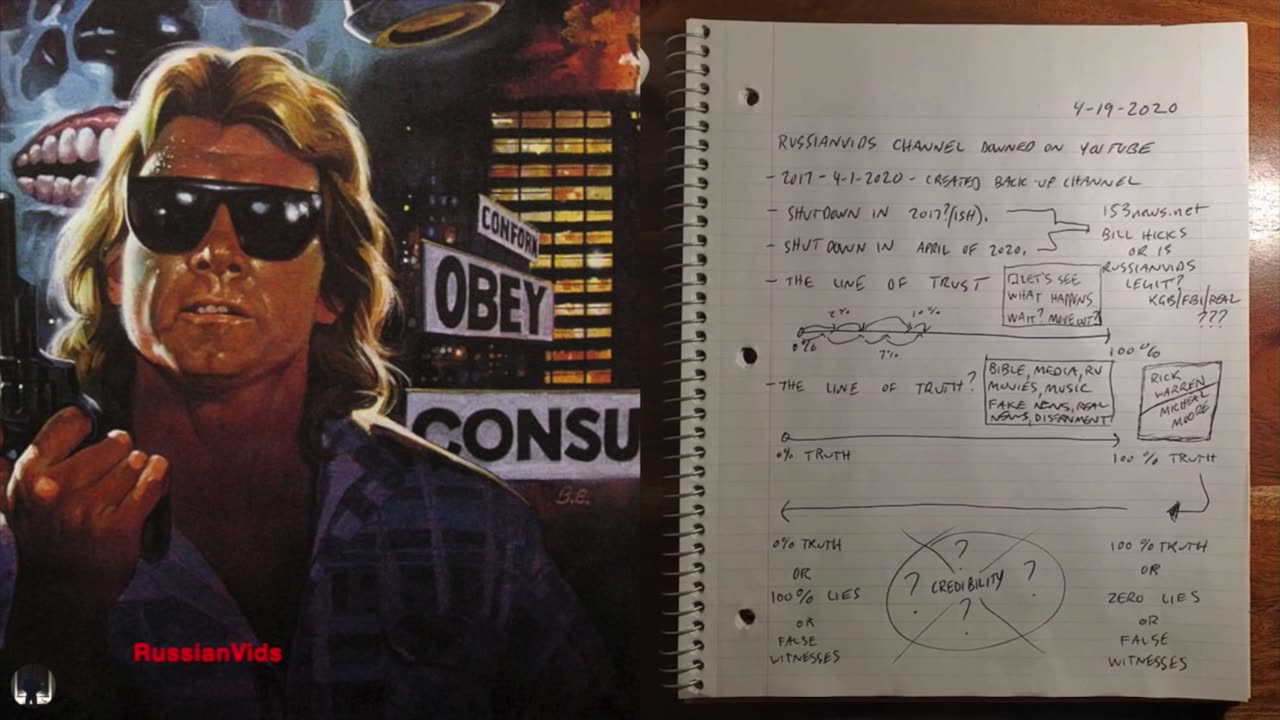 CONFORM
OBEY
CONSU
B.E.
RussianVids
4-19-2020
RUSSIANVIDS CHANNEL DOWNED ON YOUTUBE
- 2017 - 4-1-2020 - CREATED BACK-UP CHANNEL
- SHUTDOWN IN 2017?/(ISH).
- SHUTDOWN IN APRIL OF 2020.
153news.net
BILL HICKS
OR IS
RUSSIANVIDS
LEGIT?
KGB/FBI/REAL
???
- THE LINE OF TRUST
LET'S SEE
WHAT HAPPENS
WAIT? MOVE OUT?
2% 10%
0% 7%
100%
- THE LINE OF TRUTH?
BIBLE, MEDIA, RV
MOVIES, MUSIC
FAKE NEWS, REAL
NEWS, DISSERNMENT
RICK
WARREN
MICHEAL
MOORE
0% TRUTH
100% TRUTH
0% TRUTH
OR
100% LIES
OR
FALSE
WITNESSES
?
? CREDIBILITY ?
?
100% TRUTH
OR
ZERO LIES
OR
FALSE
WITNESSES